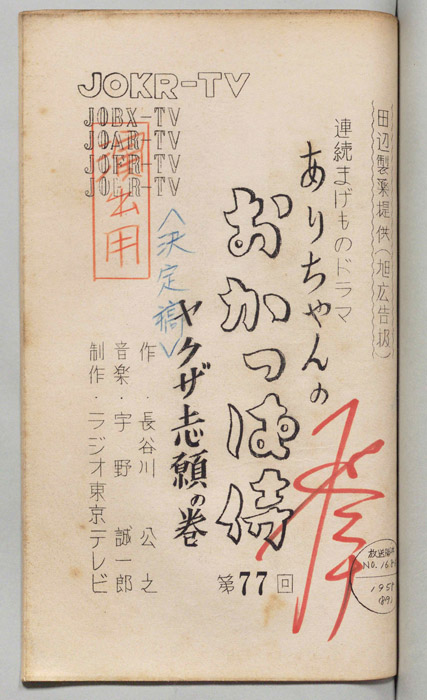 田辺製薬提供(旭広告扱)
連続まげものドラマ
ありちゃんの
おかっぱ侍
第77回
ヤクザ志願の巻
<決定稿>
作・長谷川公之
音楽・宇野誠一郎
制作・ラジオ東京テレビ
JOKR-TV
JOBX-TV
JOAR-TV
演出用
NO. 16